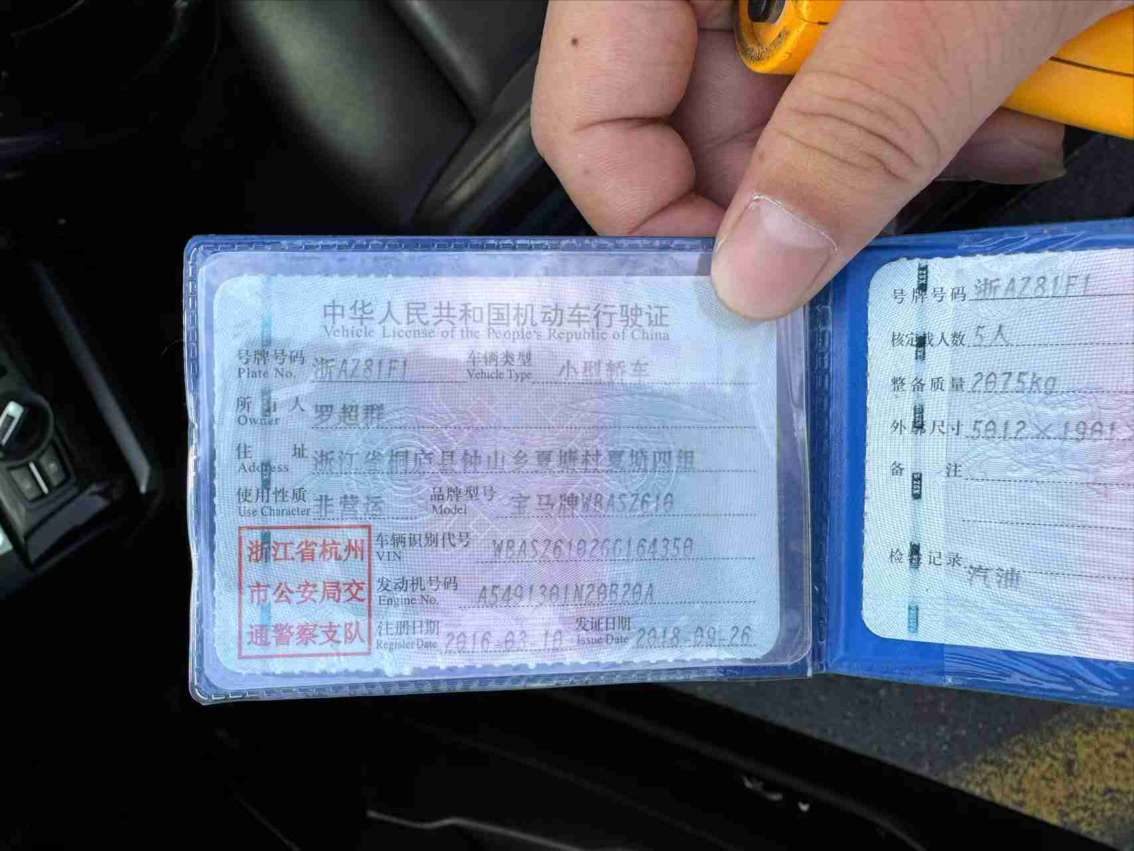 中华人民共和国机动车行驶证
Vehicle License of the People's Republic of China
号牌号码 浙AZ81F1 车辆类型 小型轿车
Plate No. Vehicle Type
所有人 罗超群
Owner
住址 浙江省桐庐县钟山乡夏塘村夏塘四组
Address
使用性质 非营运 品牌型号 宝马牌WBASZ610
Use Character Model
浙江省杭州
市公安局交
通警察支队
车辆识别代号 WBASZ6102GG164350
VIN
发动机号码 A5491301N20B20A
Engine No.
注册日期 2016-03-10 发证日期 2018-09-26
Register Date Issue Date
号牌号码 浙AZ81F1
核定载人数 5人
整备质量 2075kg
外廓尺寸 5012×1901×
备注
检验记录
汽油